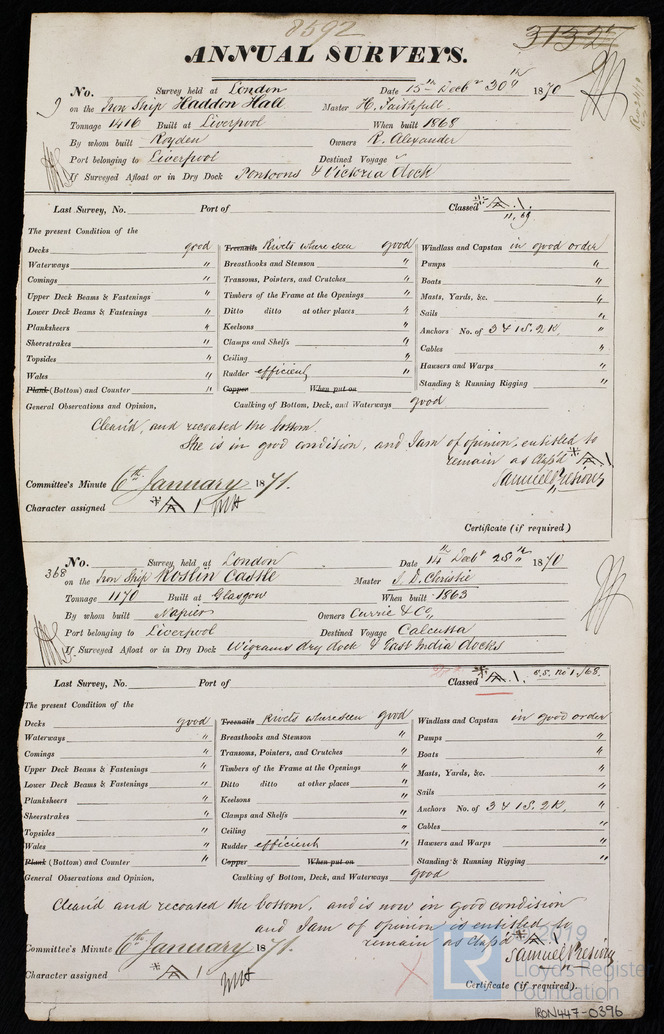 8592
3132
ANNUAL SURVEYS.
No. Survey held at London Date 15th Decr 30th 1870
on the Iron Ship Haddon Hall Master H. Faithfull
Tonnage 1416 Built at Liverpool When built 1868
By whom built Royden Owners R. Alexander
Port belonging to Liverpool Destined Voyage
If Surveyed Afloat or in Dry Dock Pontoons & Victoria dock
Last Survey, No. Port of Classed A 1.
11,69
The present Condition of the
Decks good
Waterways "
Comings "
Upper Deck Beams & Fastenings "
Lower Deck Beams & Fastenings "
Planksheers "
Sheerstrakes "
Topsides "
Wales "
Plank (Bottom) and Counter "
Treenails Rivets where seen good
Breasthooks and Stemson "
Transoms, Pointers, and Crutches "
Timbers of the Frame at the Openings "
Ditto ditto at other places "
Keelsons "
Clamps and Shelfs "
Ceiling "
Rudder efficient "
Copper When put on "
Windlass and Capstan in good order
Pumps "
Boats "
Masts, Yards, &c. "
Sails "
Anchors No. of 3 & 1S. 2K "
Cables "
Hawsers and Warps "
Standing & Running Rigging "
General Observations and Opinion, Caulking of Bottom, Deck, and Waterways good
Clean'd, and recoated the bottom.
She is in good condition, and I am of opinion, entitled to
remain as Class'd * A 1
Samuel Presious
Committee's Minute 6th January 1871.
Character assigned * A 1
Certificate (if required)
368
No. Survey held at London Date 14th Decr 28th 1870
on the Iron Ship Roslin Castle Master J. D. Christie
Tonnage 1170 Built at Glasgow When built 1863
By whom built Napier Owners Currie & Co,
Port belonging to Liverpool Destined Voyage Calcutta
If Surveyed Afloat or in Dry Dock Wigrams dry dock & East India docks
Last Survey, No. Port of Classed * A 1. S.S. No 1./68.
The present Condition of the
Decks good
Waterways "
Comings "
Upper Deck Beams & Fastenings "
Lower Deck Beams & Fastenings "
Planksheers "
Sheerstrakes "
Topsides "
Wales "
Plank (Bottom) and Counter "
Treenails Rivets where seen good
Breasthooks and Stemson "
Transoms, Pointers, and Crutches "
Timbers of the Frame at the Openings "
Ditto ditto at other places "
Keelsons "
Clamps and Shelfs "
Ceiling "
Rudder efficient "
Copper When put on "
Windlass and Capstan in good order
Pumps "
Boats "
Masts, Yards, &c. "
Sails "
Anchors No. of 3 & 1S. 2K. "
Cables "
Hawsers and Warps "
Standing & Running Rigging "
General Observations and Opinion, Caulking of Bottom, Deck, and Waterways good
Clean'd and recoated the bottom, and is now in good condition
and I am of opinion is entitled to
remain as Class'd * A 1
Samuel Presious
Committee's Minute 6th January 1871.
Character assigned * A 1
Certificate (if required).
© 2019
LR Lloyd's Register
Foundation
IRON447-0396